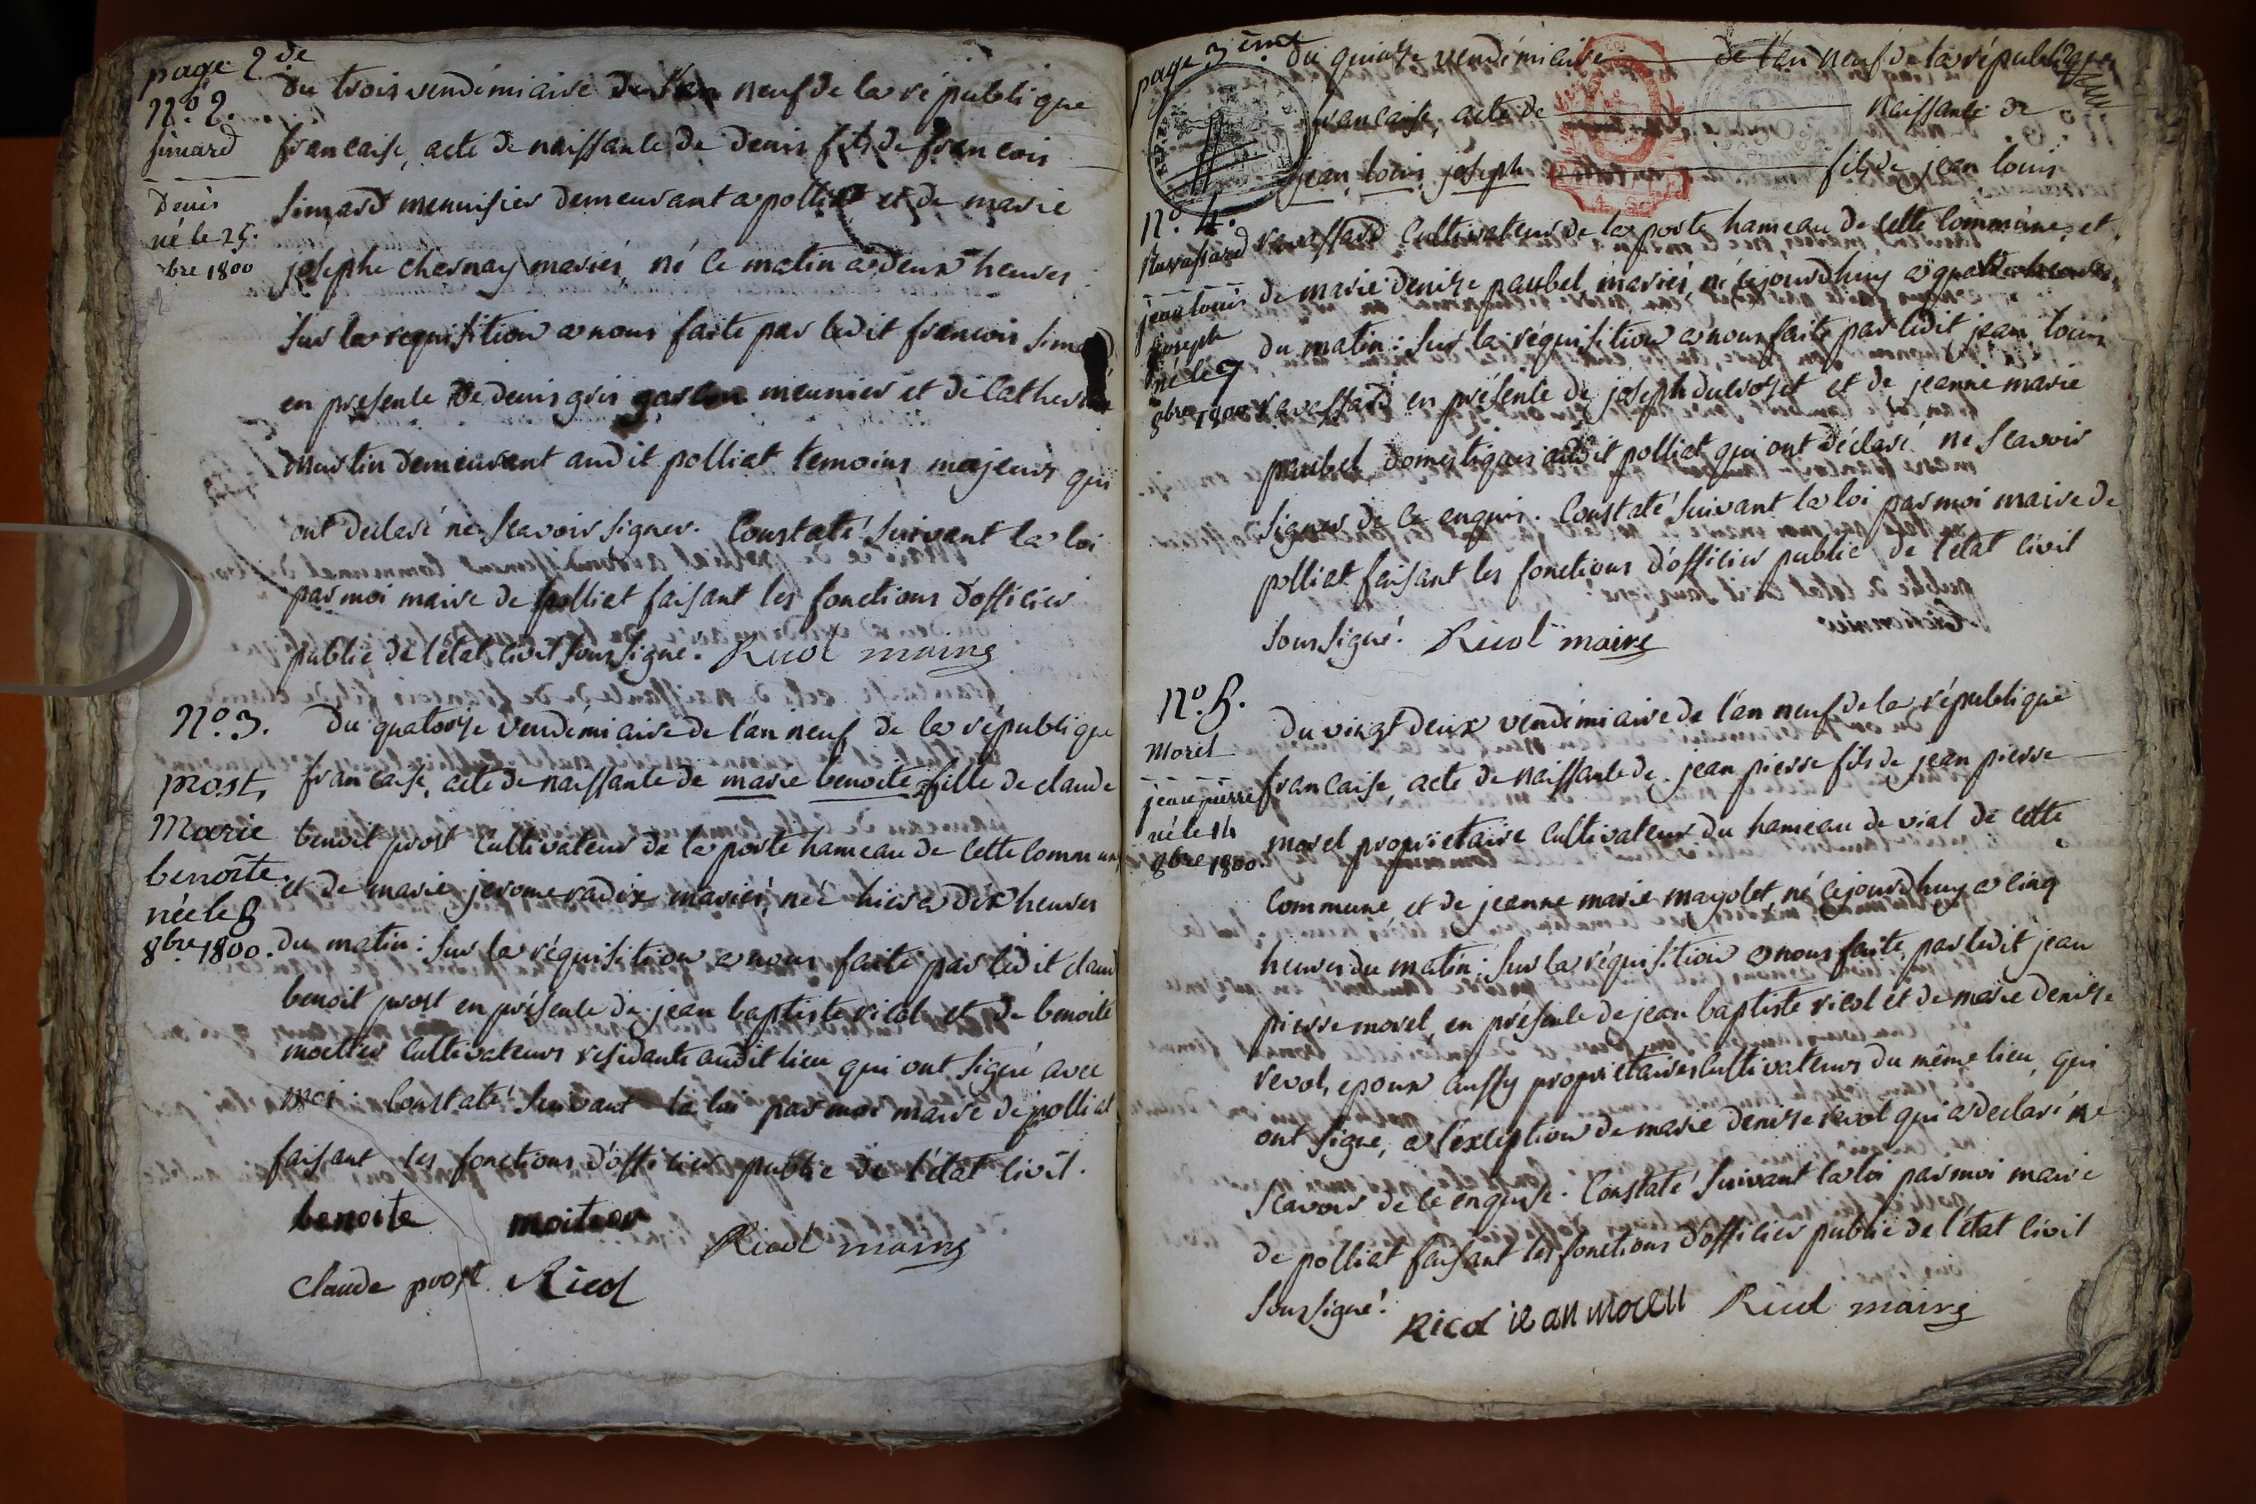 page 2de
No. 2.
simard
Denis
né le 25.
bre 1800
Du trois vendémiaire de l'an neuf de la république
francaise, acte de naissance de denis fils de francois
simard meunisier demeurant a polliat et de marie
josephe chesnay mariés, né ce matin a deux heures
sur la requisition a nous faite par ledit francois simard
en presence de denis gris garcon meunier et de catherine
martin demeurant audit polliat temoins majeurs qui
ont declaré ne scavoir signer. Constaté suivant la loi
par moi maire de polliat faisant les fonctions d'officier
public de l'état civil soussigné. Ricol maire
No. 3.
prost,
Marie
benoite
née le 5
8bre 1800.
Du quatorze vendémiaire de l'an neuf de la république
francaise, acte de naissance de marie benoite fille de claude
benoit prost cultivateur de la poste hameau de cette commune
et de marie jerome radix mariés, née hier a dix heures
du matin : sur la réquisition a nous faite par ledit claude
benoit prost en présence de jean baptiste ricol et de benoite
moitier cultivateurs residants audit lieu qui ont signé avec
moi. Constaté suivant la loi par moi maire de polliat
faisant les fonctions d'officier public de l'état civil.
benoite moitier Ricol maire
claude prost Ricol
page 3ème
No. 4.
Ravassard
jean louis
joseph
né le 7
8bre 1800
Du quinze vendémiaire de l'an neuf de la république
francaise, acte de naissance de
jean louis joseph fils de jean louis
ravassard cultivateur de la poste hameau de cette commune, et
de marie denize paubel mariés, né cejourdhuy a quatre heures
du matin : sur la réquisition a nous faite par ledit jean louis
ravassard en présence de joseph ducrozet et de jeanne marie
paubel domestiques audit polliat qui ont déclaré ne scavoir
signer de ce enquis. Constaté suivant la loi par moi maire de
polliat faisant les fonctions d'officier public de l'état civil
soussigné. Ricol maire
No. 5.
Morel
jean pierre
né le 14
8bre 1800.
Du vingt deux vendémiaire de l'an neuf de la république
francaise, acte de naissance de jean pierre fils de jean pierre
morel propriétaire cultivateur du hameau de vial de cette
commune, et de jeanne marie mayolet, né cejourdhuy a cinq
heures du matin : sur la réquisition a nous faite, par ledit jean
pierre morel, en présence de jean baptiste ricol et de marie denize
revol, epoux aussy propriétaires cultivateurs du même lieu, qui
ont signé, a l'exception de marie denize revol qui a declaré ne
scavoir de ce enquise. Constaté suivant la loi par moi maire
de polliat faisant les fonctions d'officier public de l'état civil
soussigné. Ricol jean morell Ricol maire